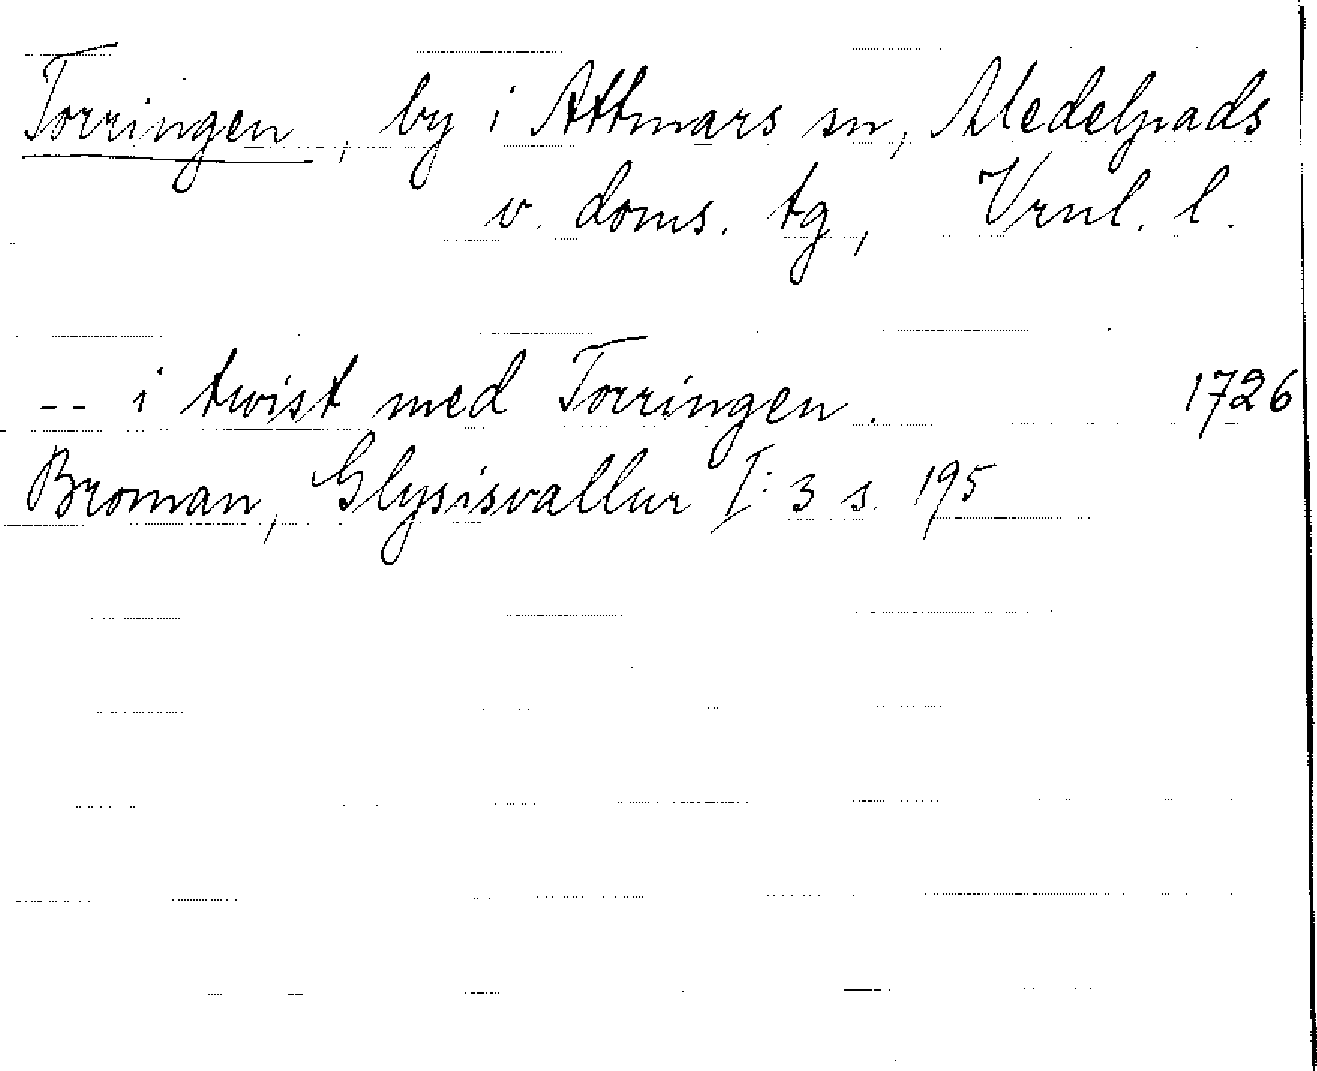 Torringen, by i Attmars sn, Medelpads
v. doms. tg, Vrnl. l.
-- i twist med Torringen. 1726
Broman, Glysisvallur I: 3 s. 195